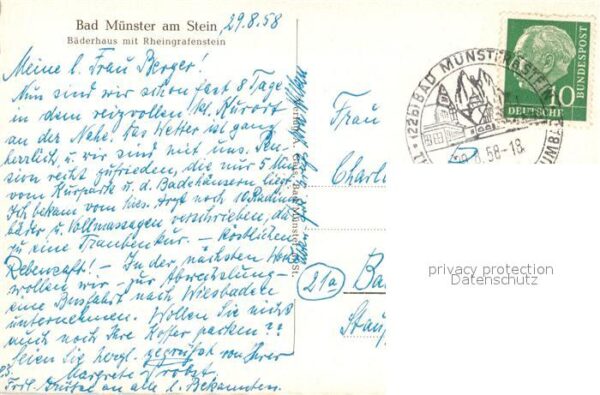 Bad Münster am Stein, 29.8.58
Bäderhaus mit Rheingrafenstein
Meine l. Frau Berger!
Nun sind wir schon fast 8 Tage
in dem reizvollen kl. Kurort
an der Nahe. Das Wetter ist ganz
herrlich, u. wir sind mit uns. Pen-
sion recht zufrieden, die nur 5 Min.
vom Kurpark u. d. Badehäusern liegt.
Ich bekam vom hies. Arzt noch 10 Radium-
bäder u. Vollmassagen verschrieben, da-
zu eine Traubenkur. – Köstlichen
Rebensaft! – In der nächsten Woche
wollen wir – zur Abwechslung –
eine Busfahrt nach Wiesbaden
unternehmen. Wollen Sie nicht
auch noch Ihre Koffer packen??
Seien Sie herzl. gegrüßt von Ihrer
Margrete Probst
an alle l. Bekannten.
Frau
Charl
21a
Ba
Stau
10
DEUTSCHE
BUNDESPOST
(22b) BAD MÜNSTER A STEIN
8.58-18
privacy protection
Datenschutz